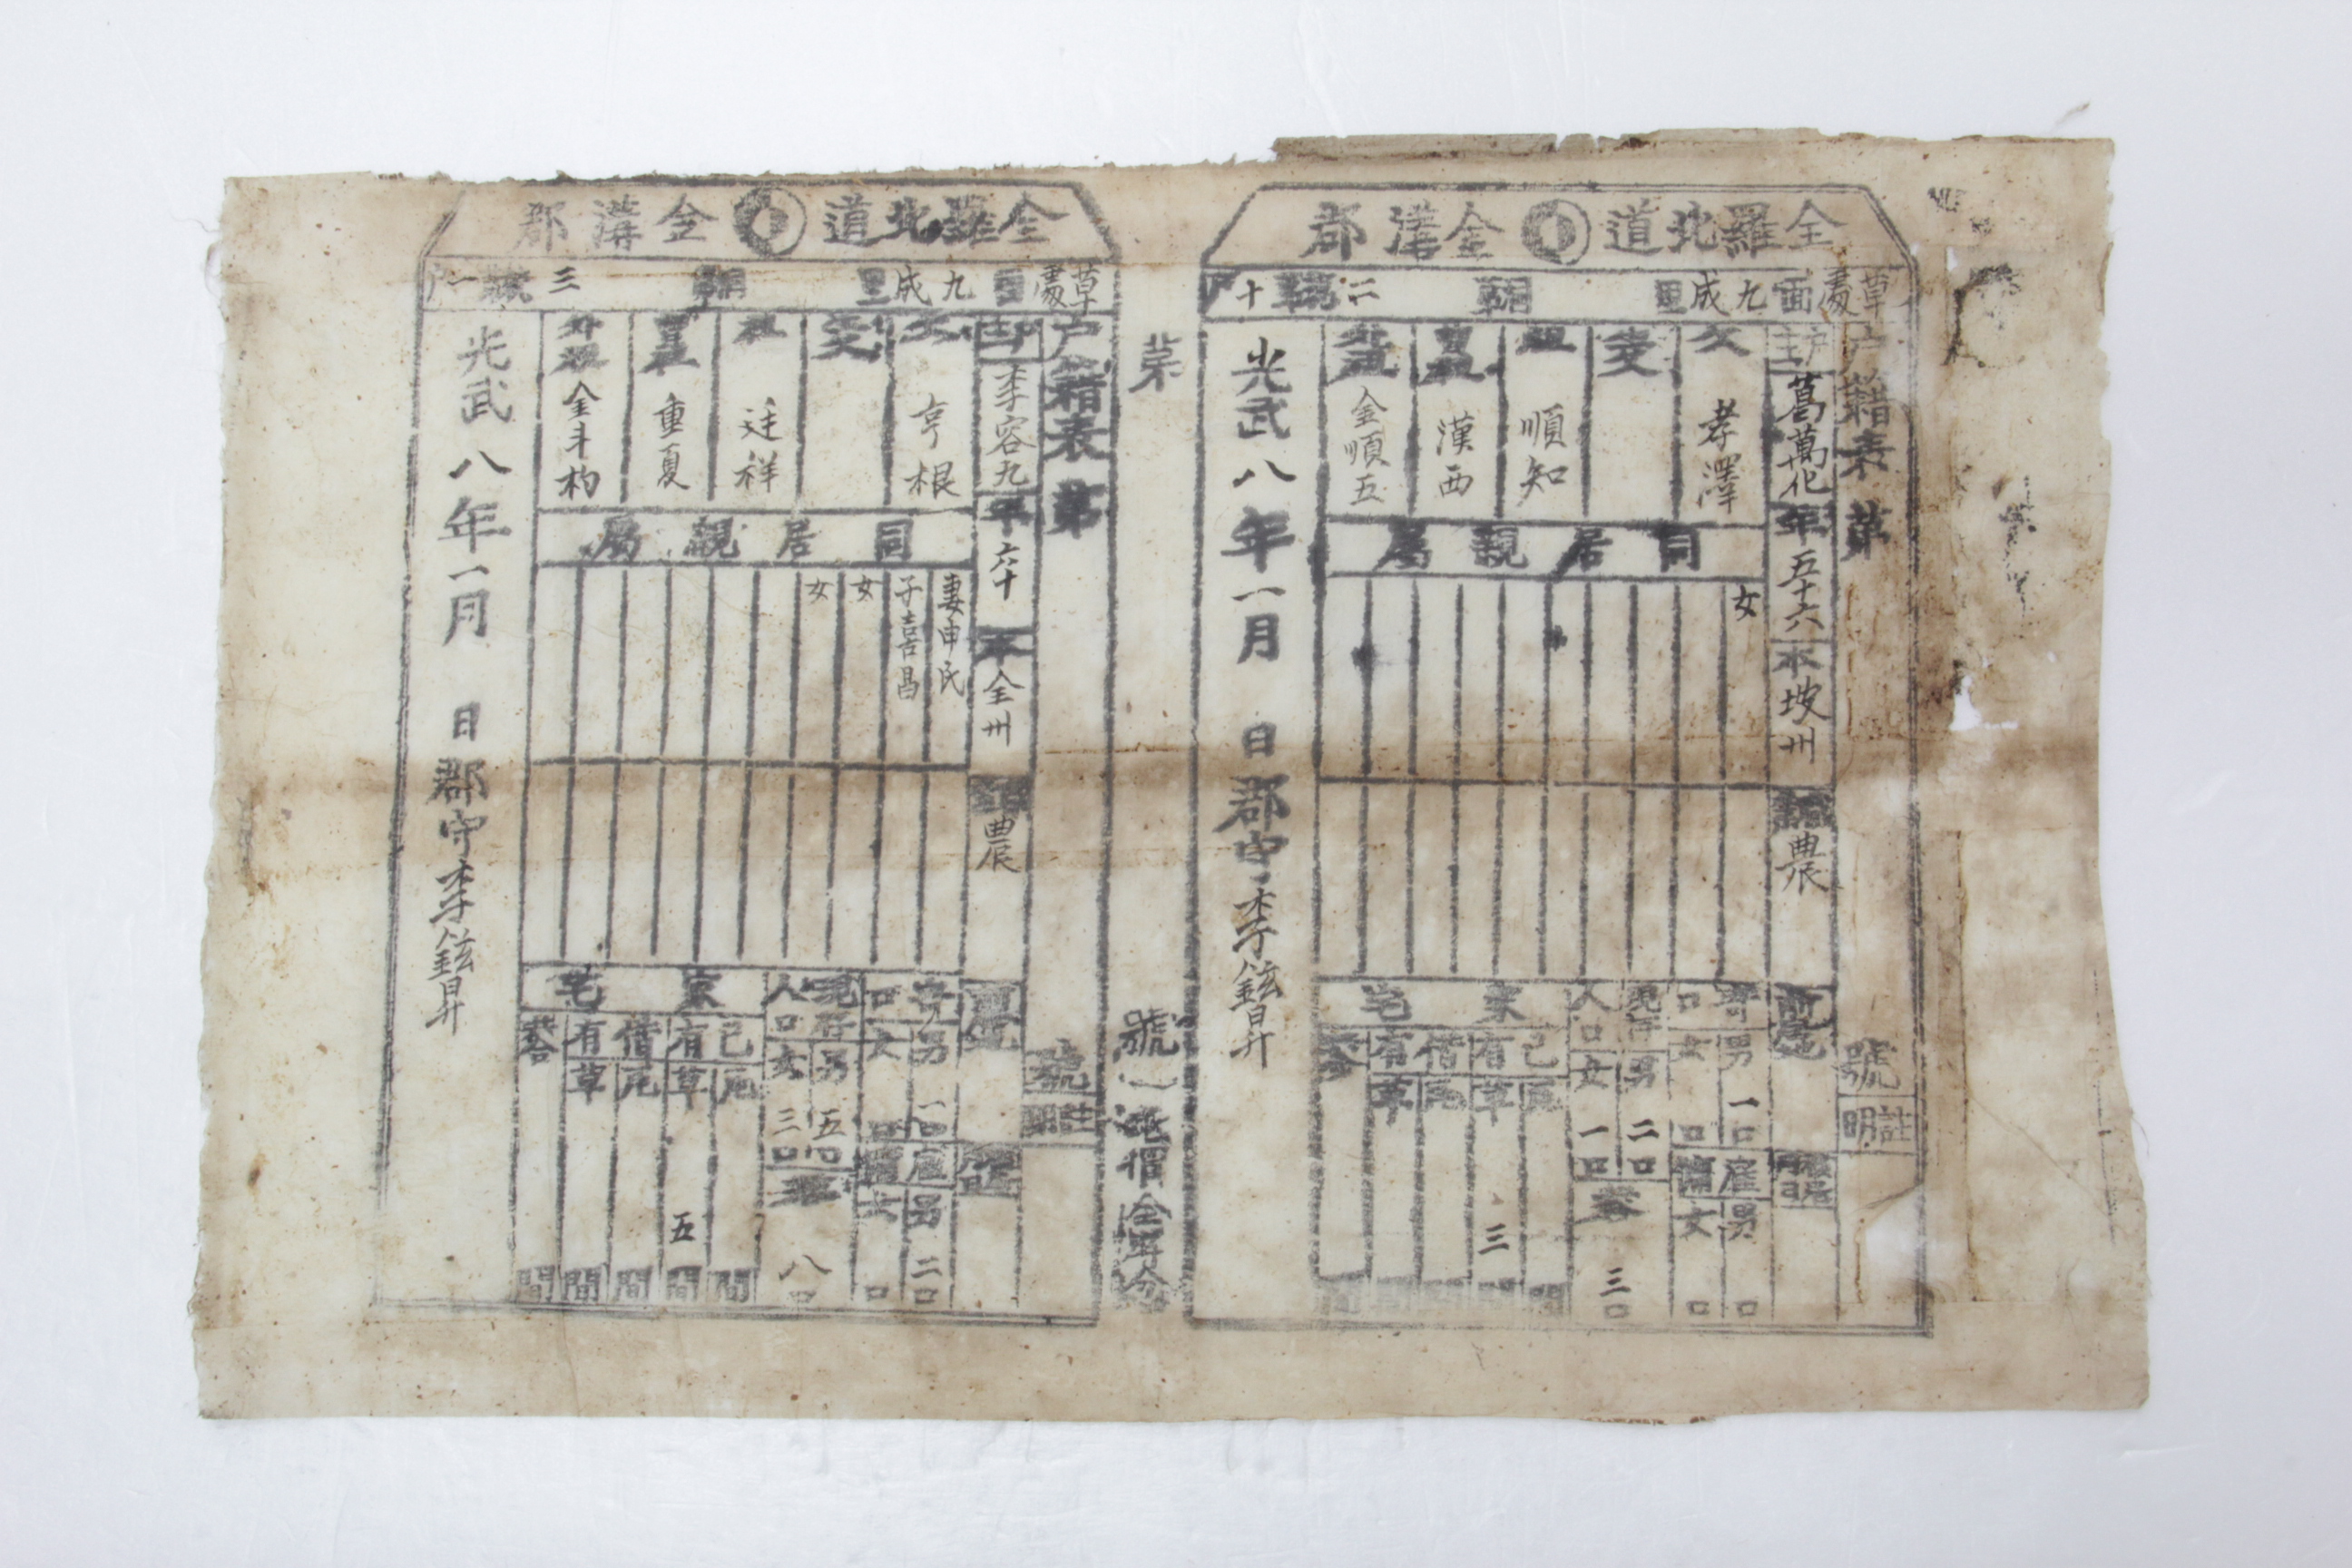 全羅北道 金溝郡
草處面 九成里 二 統 十 戶
戶籍表 第 號
註明
戶主 葛萬化 年 五十六 本 坡州 職業 農 前居地
父 孝澤
生父
祖 順知
曾祖 漢西
外祖 金順五
同居親屬
女
寄口 男 一口 女 口
雇傭 男 口 女 口
現存人口 男 二口 女 一口
共合 三口
家宅
己有 瓦 間 草 三 間
借有 瓦 間 草 間
共合 間
光武八年一月 日 郡守 李鉉昇
第 號
全羅北道 金溝郡
草處面 九成里 三 統 一 戶
戶籍表 第 號
註明
戶主 李容九 年 六十 本 全州 職業 農 前居地
父 亨根
生父
祖 廷祥
曾祖 重夏
外祖 金斗杓
同居親屬
妻申氏
子喜昌
女
女
寄口 男 一口 女 口
雇傭 男 二口 女 口
現存人口 男 五口 女 三口
共合 八口
家宅
己有 瓦 間 草 五 間
借有 瓦 間 草 間
共合 間
光武八年一月 日 郡守 李鉉昇